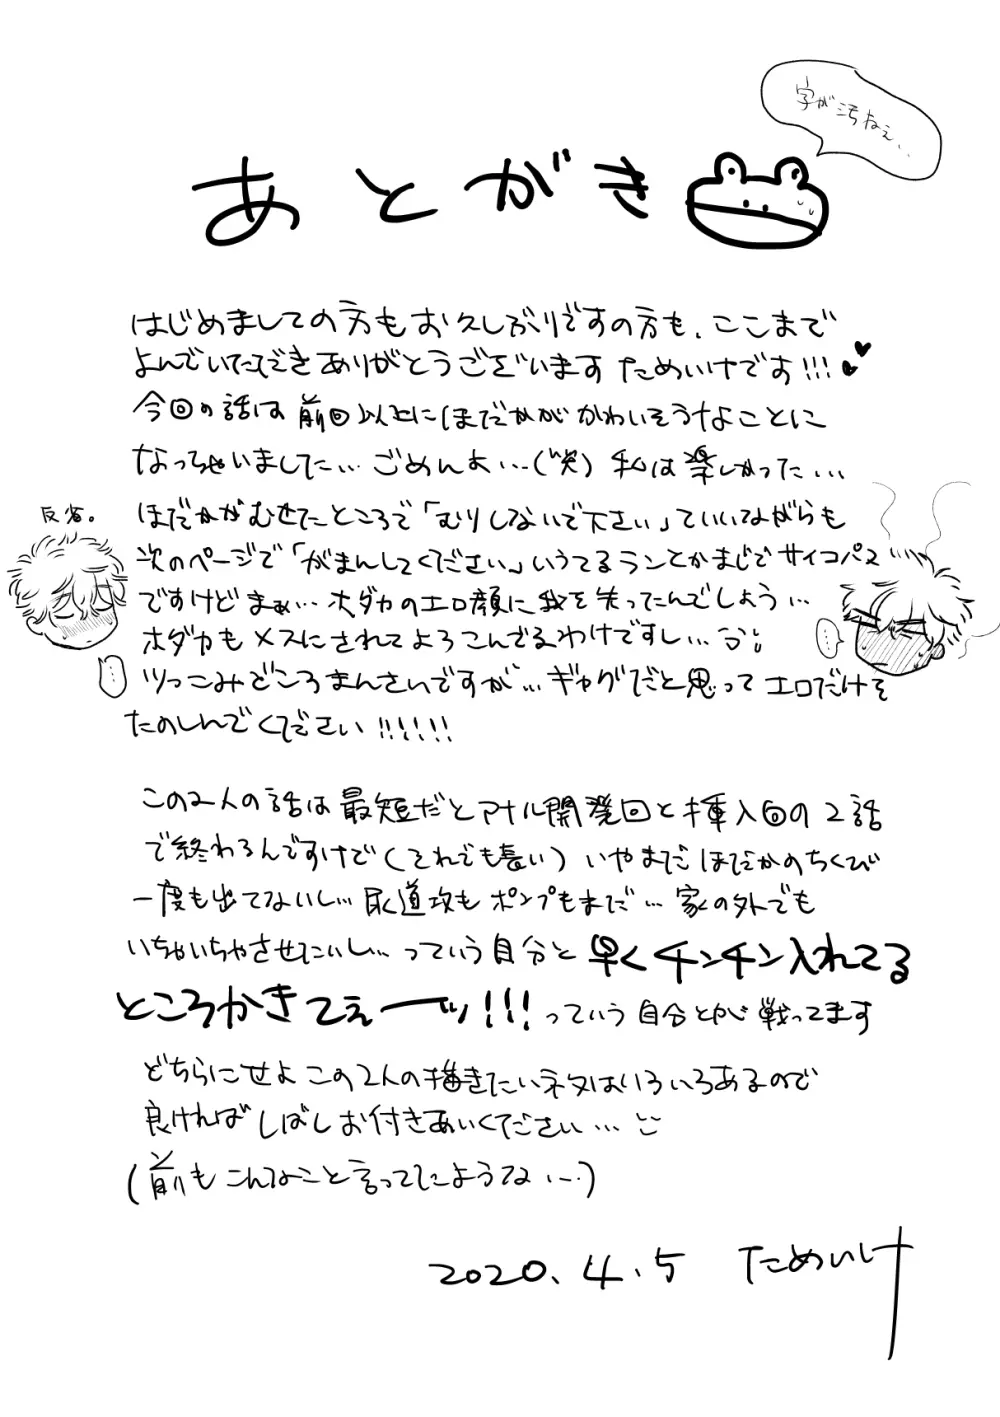 字が汚ねぇ...
あとがき
はじめましての方もお久しぶりですの方も、ここまで
よんでいただきありがとうございます ためいけです!!!
今回の話は前回以上にほだかがかわいそうなことに
なっちゃいました... ごめんよ...(笑) 私は楽しかった...
反省。
ほだかがむせたところで「むりしないで下さい」ていいながらも
次のページで「がまんしてください」いうてるランとかまじでサイコパス
ですけどまぁ... ホダカのエロ顔に我を失ってたんでしょう...
ホダカもメスにされてよろこんでるわけですし...
ツっこみどころまんさいですが... ギャグだと思ってエロだけを
たのしんでください!!!!!!
この2人の話は最短だとアナル開発回と挿入回の2話
で終わるんですけで(それでも長い) いやまだほだかのちくび
一度も出てないし... 尿道攻もポンプもまだ... 家の外でも
いちゃいちゃさせたいし... っていう自分と早くチンチン入れてる
ところかきてぇーッ!!!っていう自分とが戦ってます
どちらにせよこの2人の描きたいネタはいろいろあるので
良ければしばしお付きあいください...
(前もこんなこと言ってたような...)
2020.4.5 ためいけ